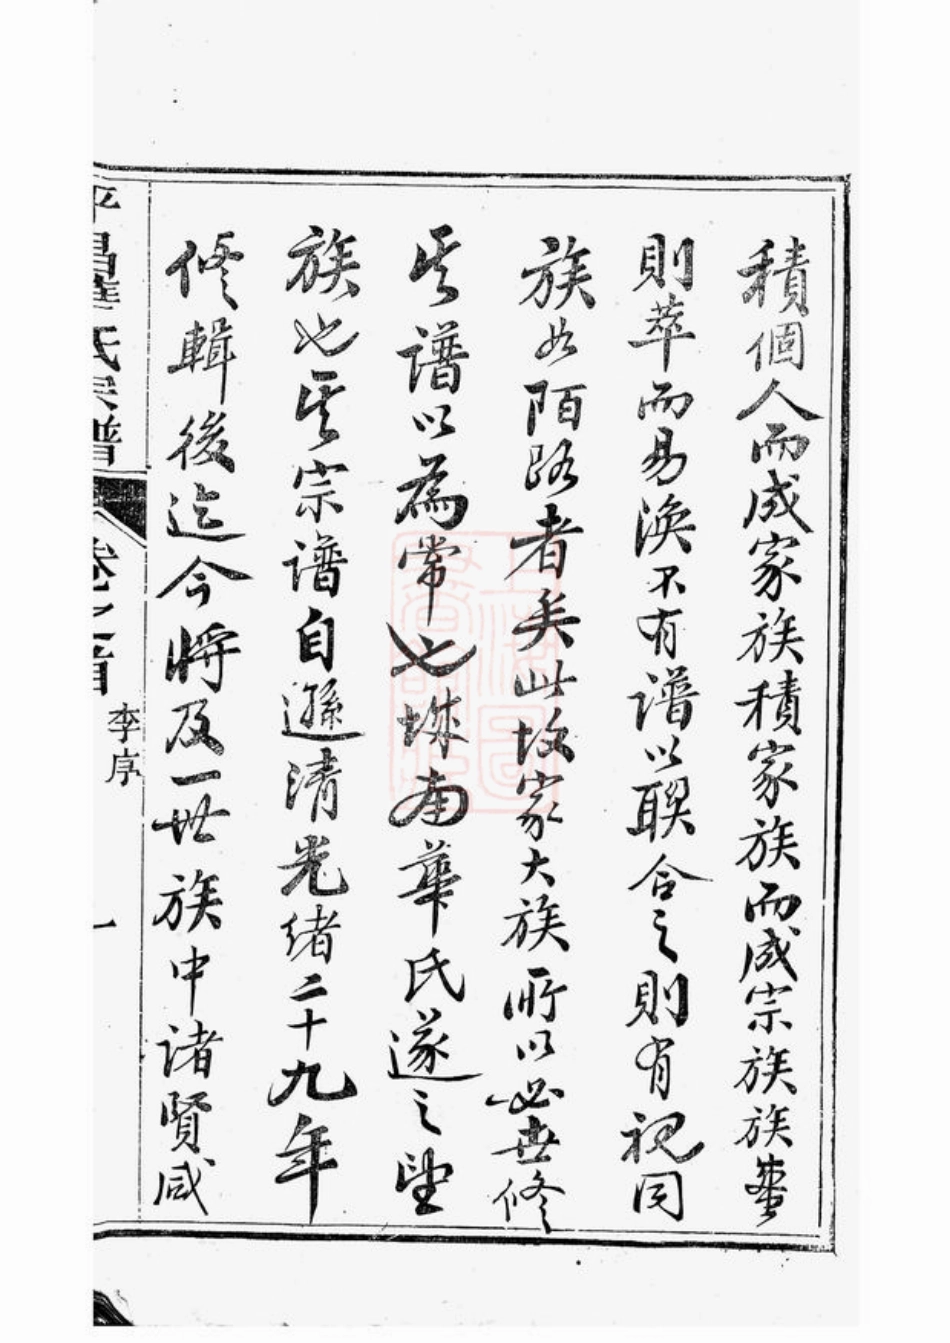 積個人而成家族積家族而成宗族族蕃
則萃而易渙不有譜以聯合之則有視同
族如陌路者矣此故家大族所以必世修
其譜以為常也垛南華氏遂之望
族也其宗譜自遜清光緒二十九年
修輯後迄今將及一世族中諸賢咸
平昌華氏宗譜
卷之首
李序
一